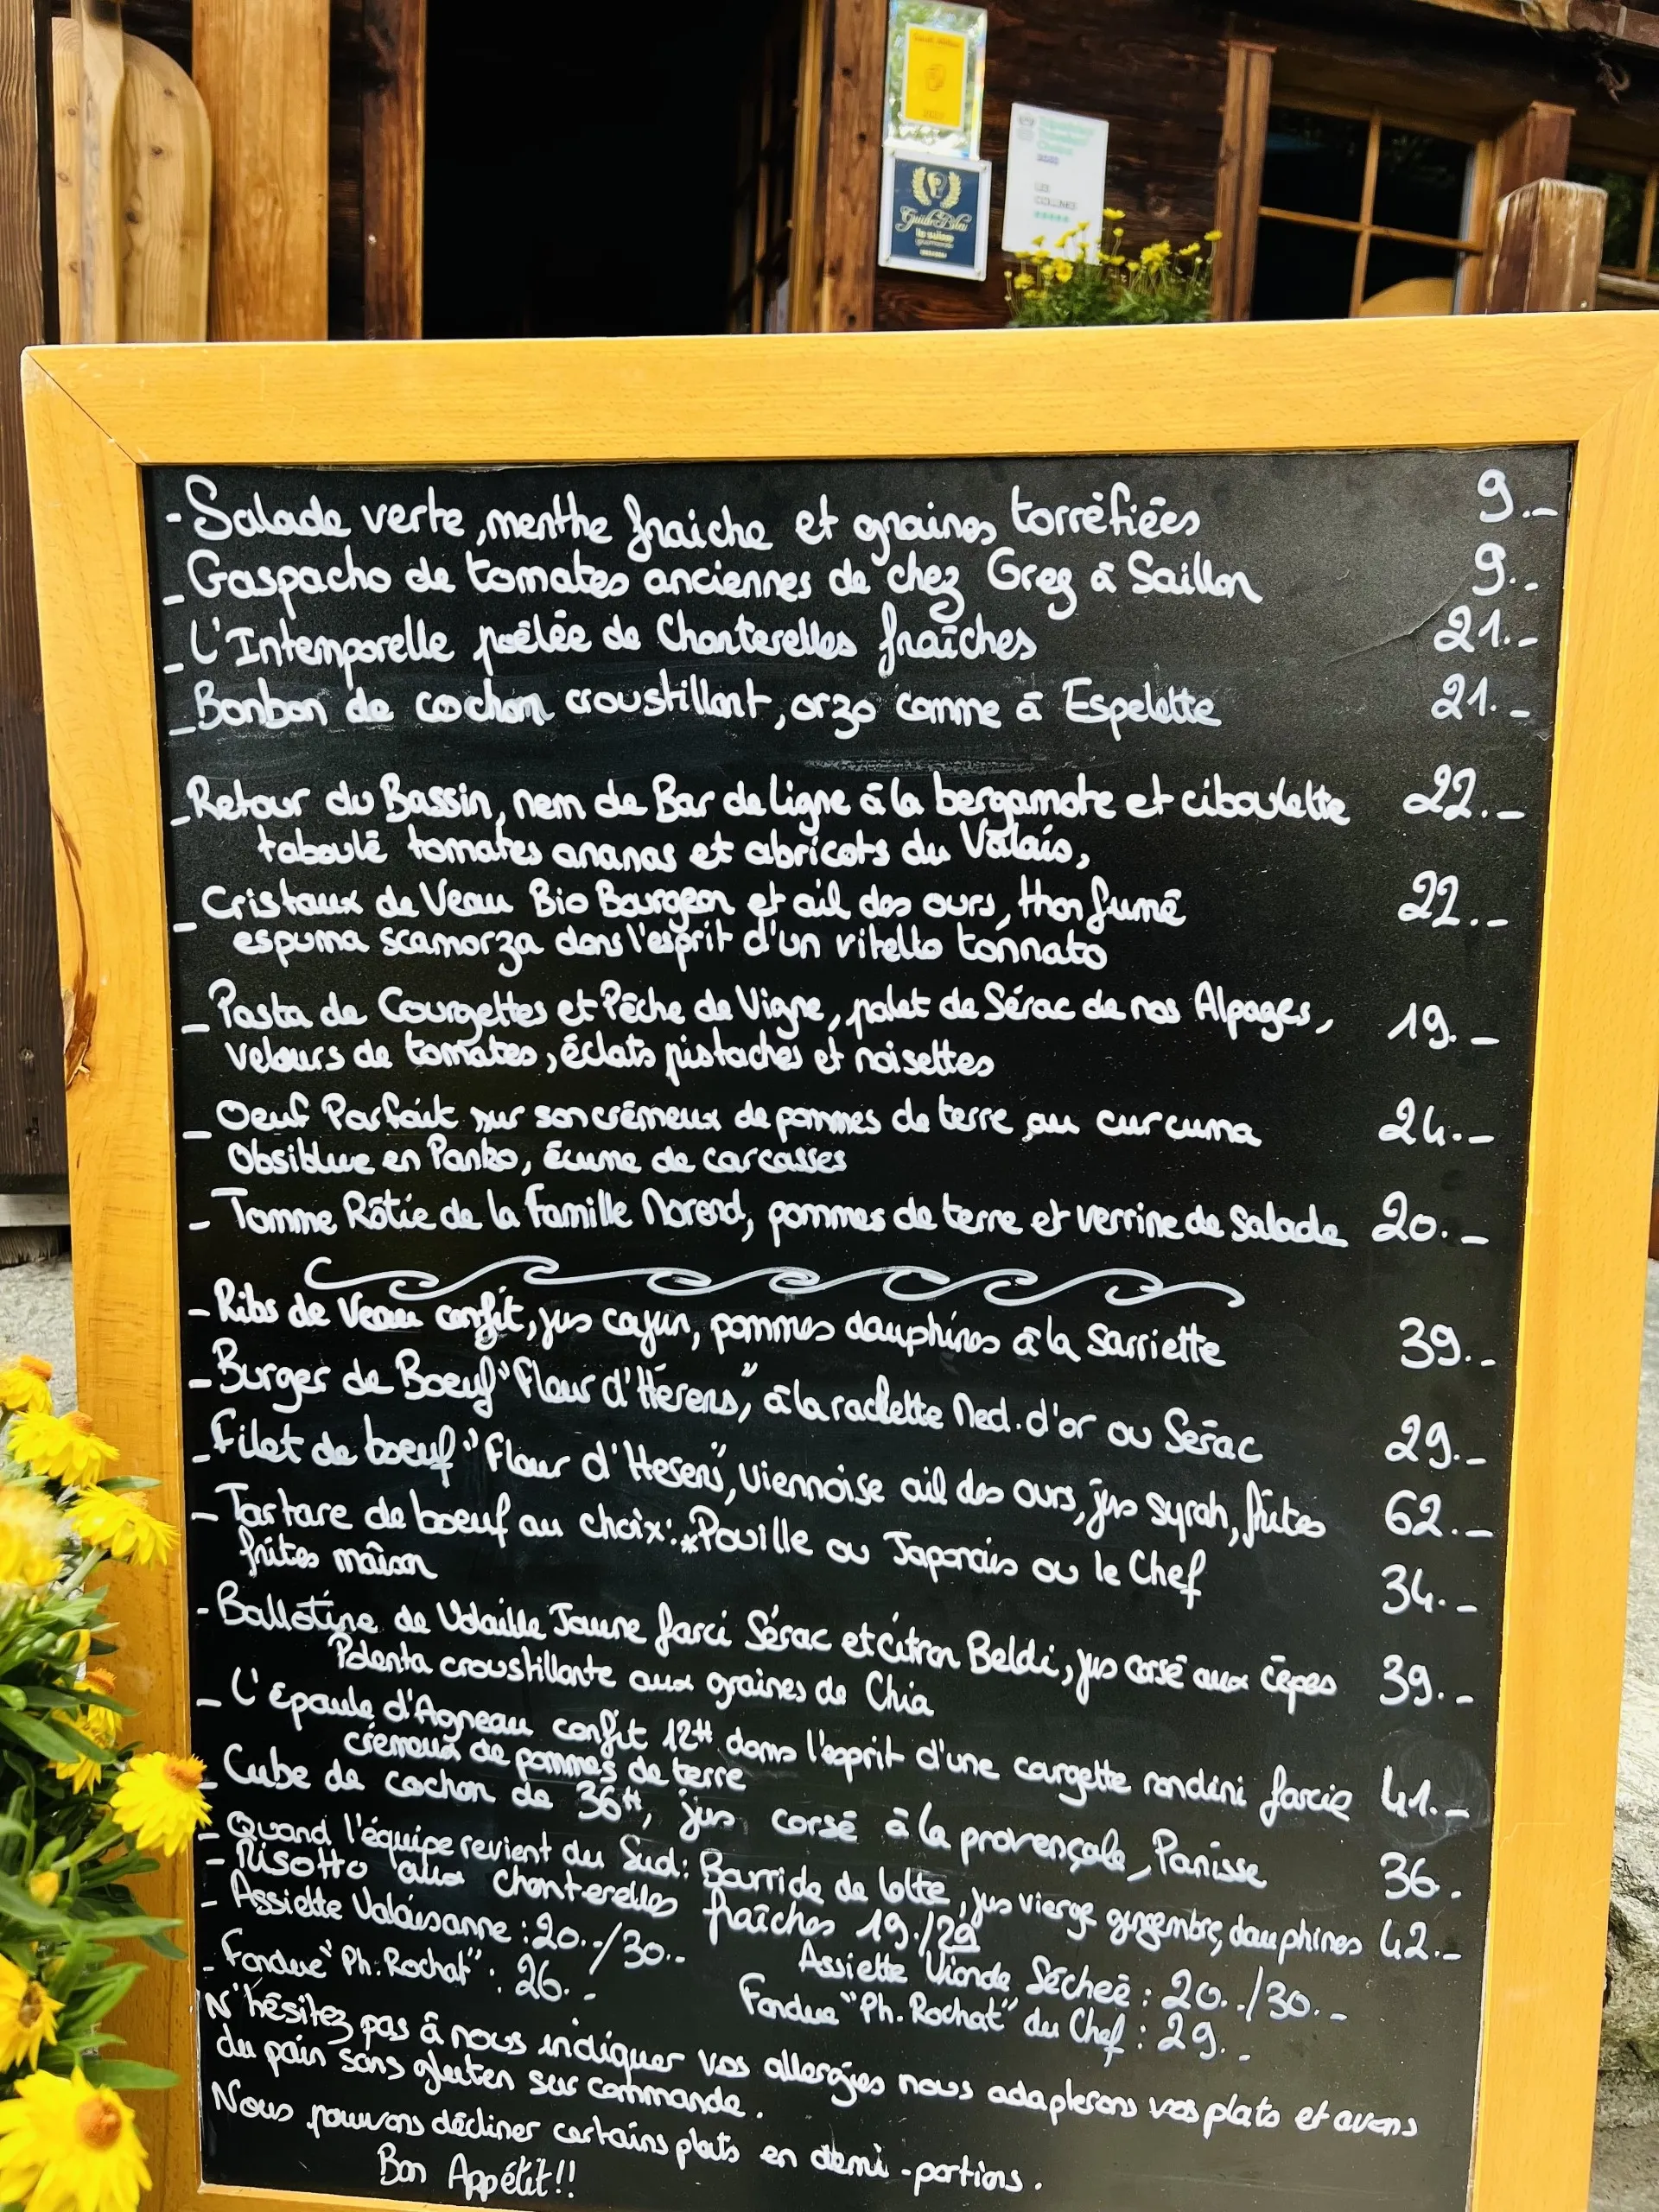 - Salade verte, menthe fraiche et graines torréfiées 9.-
- Gaspacho de tomates anciennes de chez Greg à Saillon 9.-
- L'Intemporelle poêlée de Chanterelles fraîches 21.-
- Bonbon de cochon croustillant, orzo comme à Espelette 21.-
- Retour du Bassin, nem de Bar de ligne à la bergamote et ciboulette 22.-
taboulé tomates ananas et abricots du Valais,
- Cristaux de Veau Bio Bourgeon et ail des ours, thon fumé 22.-
espuma scamorza dans l'esprit d'un vitello tonnato
- Pasta de Courgettes et Pêche de Vigne, palet de Sérac de nos Alpages, 19.-
velours de tomates, éclats pistaches et noisettes
- Oeuf Parfait sur son crémeux de pommes de terre au curcuma 24.-
Obsiblue en Panko, écume de carcasses
- Tomme Rôtie de la famille Norend, pommes de terre et verrine de Salade 20.-
- Ribs de Veau confit, jus cajun, pommes dauphines à la Sarriette 39.-
- Burger de Boeuf "Fleur d'Hérens", à la raclette Med. d'or ou Sérac 29.-
- Filet de boeuf "Fleur d'Hérens", viennoise ail des ours, jus syrah, frites 62.-
- Tartare de boeuf au choix: *Pouille ou Japonais ou le Chef 34.-
frites maison
- Ballotine de Volaille Jaune farci Sérac et citron Beldi, jus corsé aux cèpes 39.-
Polenta croustillante aux graines de Chia
- L'Epaule d'Agneau confit 12H dans l'esprit d'une courgette rondini farcie 41.-
crémeux de pommes de terre
- Cube de cochon de 36H, jus corsé à la provençale, Panisse 36.
- Quand l'équipe revient du Sud: Bourride de lotte, jus vierge gingembre, dauphines 42.-
- Risotto aux chanterelles fraîches 19./29
- Assiette Valaisanne : 20.-/30.- Assiette Viande Séchée : 20.-/30.-
- Fondue "Ph. Rochat" : 26.- Fondue "Ph. Rochat" du Chef : 29.-
N'hésitez pas à nous indiquer vos allergies nous adapterons vos plats et avons
du pain sans gluten sur commande.
Nous pouvons décliner certains plats en demi-portions.
Bon Appétit!!